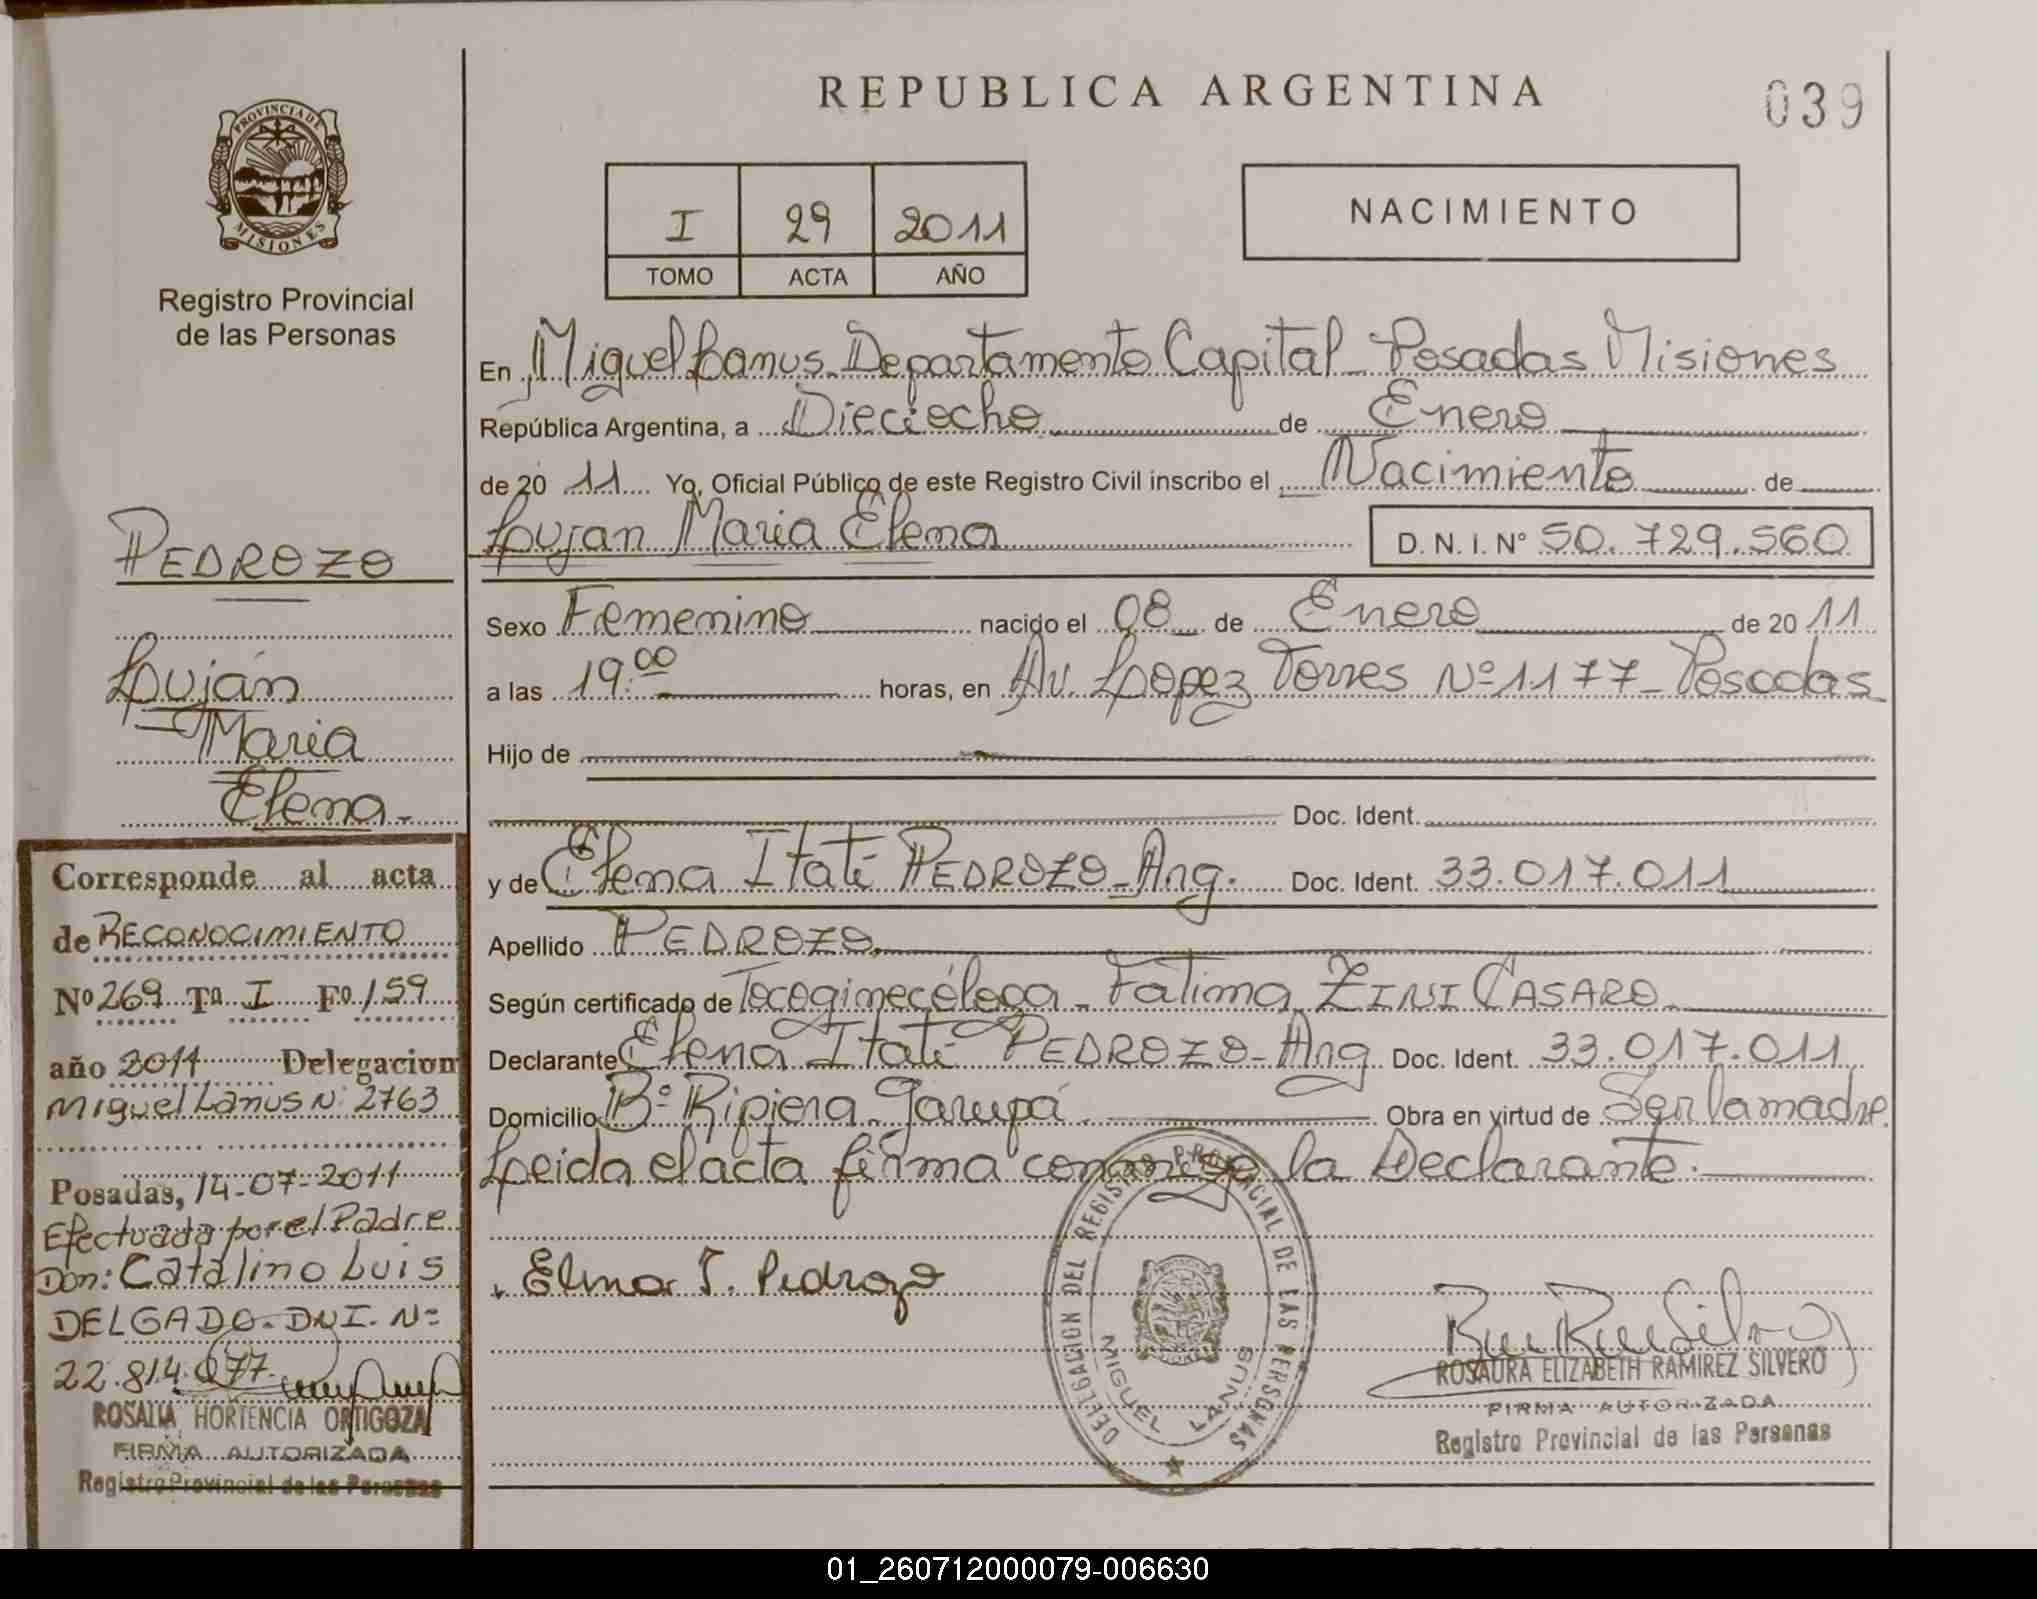 REPUBLICA ARGENTINA
039
PROVINCIA DE
MISIONES
Registro Provincial
de las Personas
I 29 2011
TOMO ACTA AÑO
NACIMIENTO
En Miguel Lanus Departamento Capital - Posadas Misiones
República Argentina, a Dieciocho de Enero
de 20 11 Yo, Oficial Público de este Registro Civil inscribo el Nacimiento de
Lujan Maria Elena D. N. I. Nº 50.729.560
Sexo Femenino nacido el 08 de Enero de 20 11
a las 19:00 horas, en Av. Lopez Torres Nº 1177 - Posadas
Hijo de
Doc. Ident.
y de Elena Itatí PEDROZO - Arg. Doc. Ident. 33.017.011
Apellido PEDROZO
Según certificado de Tocoginecóloga - Fatima ZINI CASARO
Declarante Elena Itatí PEDROZO - Arg Doc. Ident. 33.017.011
Domicilio Bº Ripiera Garupá Obra en virtud de Ser la madre.
Leida el acta firma conmigo la Declarante.
Elena I. Pedrozo
DELEGACION DEL REGISTRO PROVINCIAL DE LAS PERSONAS
MIGUEL LANUS
ROSAURA ELIZABETH RAMIREZ SILVERO
FIRMA AUTORIZADA
Registro Provincial de las Personas
PEDROZO
Luján
Maria
Elena.
Corresponde al acta
de RECONOCIMIENTO
Nº 269 Tº I Fº 159
año 2011 Delegacion
Miguel Lanus Nº 2763
Posadas, 14-07-2011
Efectuada por el Padre
Don: Catalino Luis
DELGADO. DNI. Nº
22.814.077.
ROSALIA HORTENCIA ORTIGOZA
FIRMA AUTORIZADA
Registro Provincial de las Personas
01_260712000079-006630